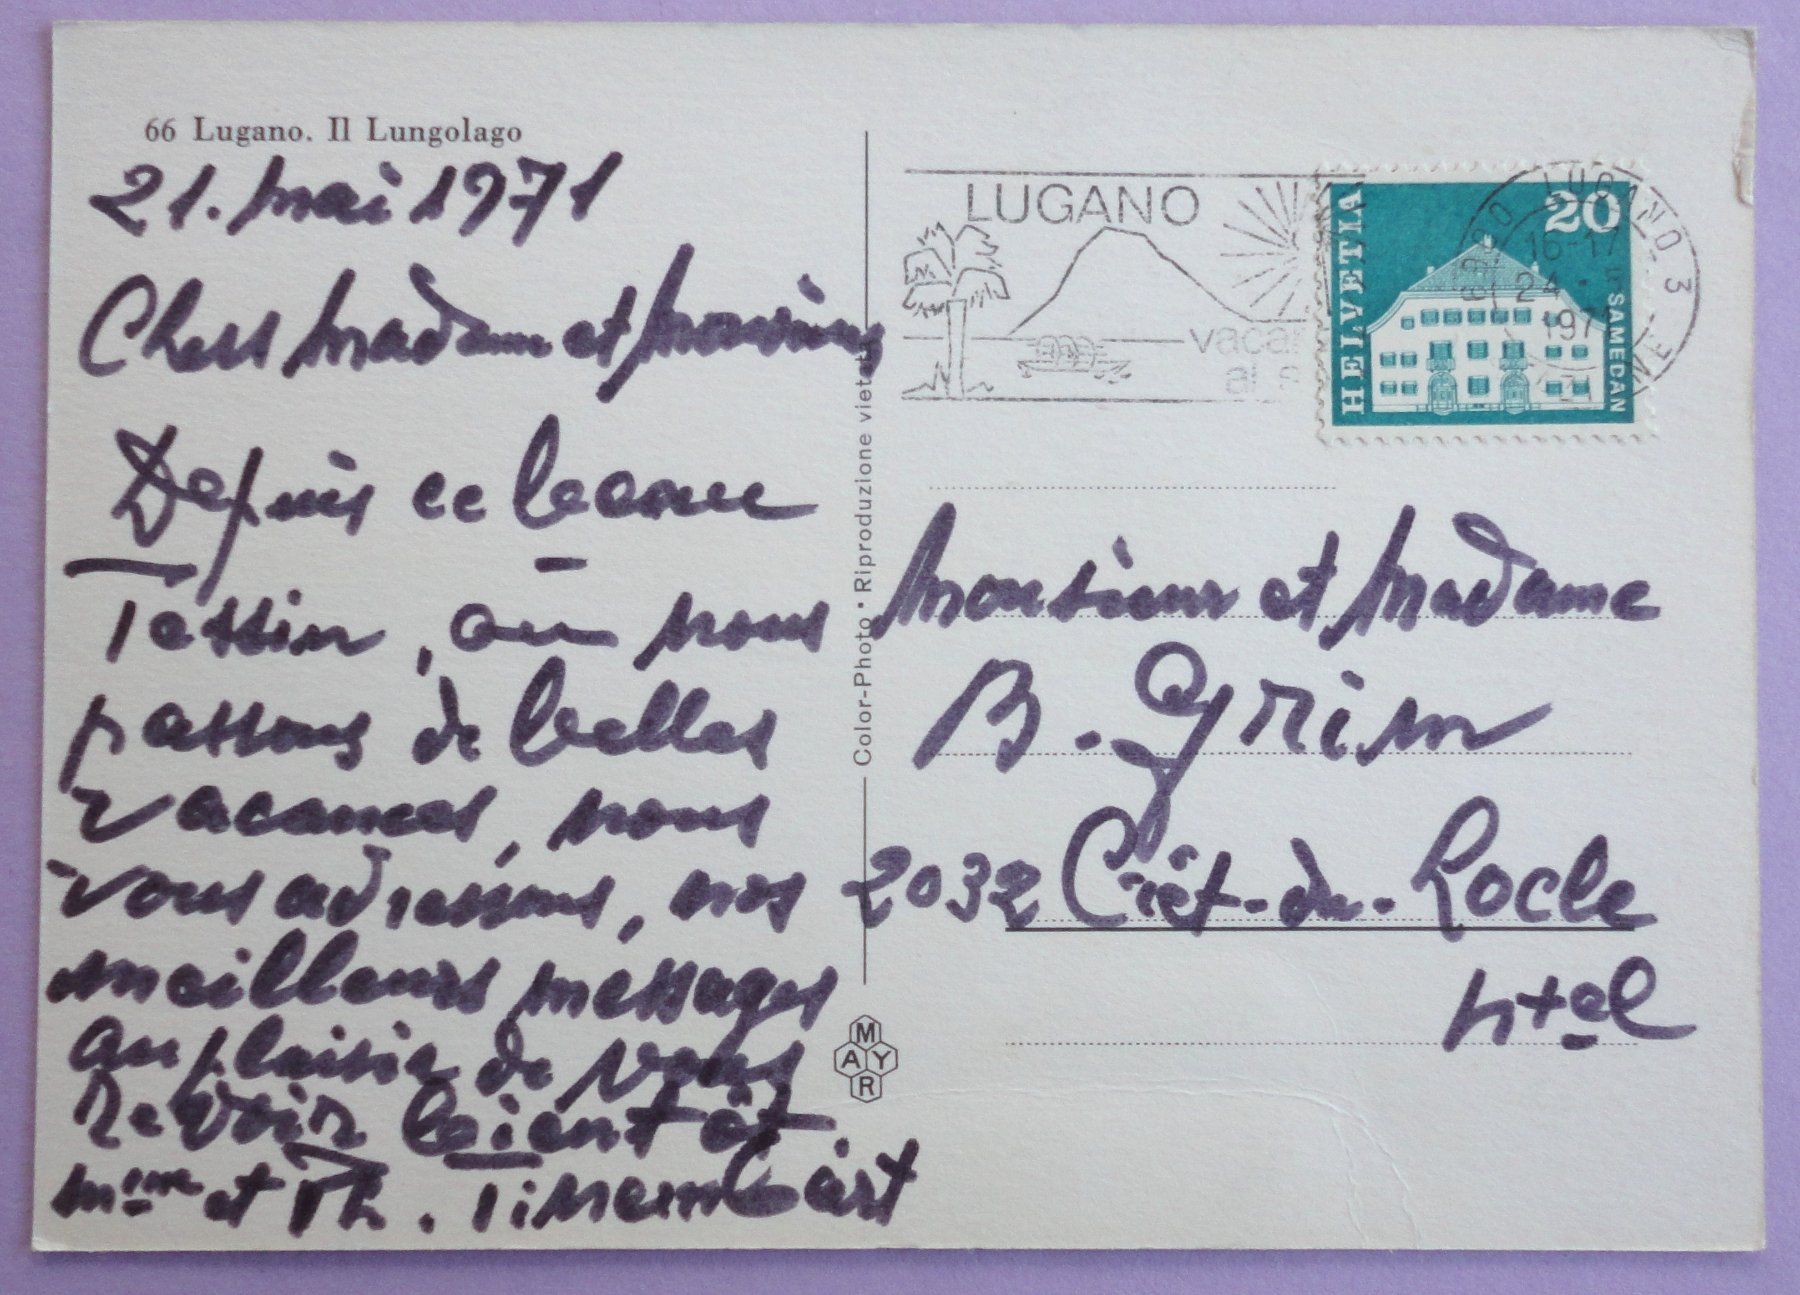 66 Lugano. Il Lungolago
21. mai 1971
Chers Madame et Monsieur
Depuis ce beau
Tessin, ou nous
passons de belles
vacances, nous
vous adressons, nos
meilleurs méssages
au plaisir de vous
revoir bientôt
Mme et Th.
Color-Photo • Riproduzione vietata
MAYR
LUGANO
vacan
al s
HELVETIA
20
SAMEDAN
LUGANO 3
16-17
24
197
Monsieur et Madame
B. Grim
2032 Crêt-du-Locle
Ntel